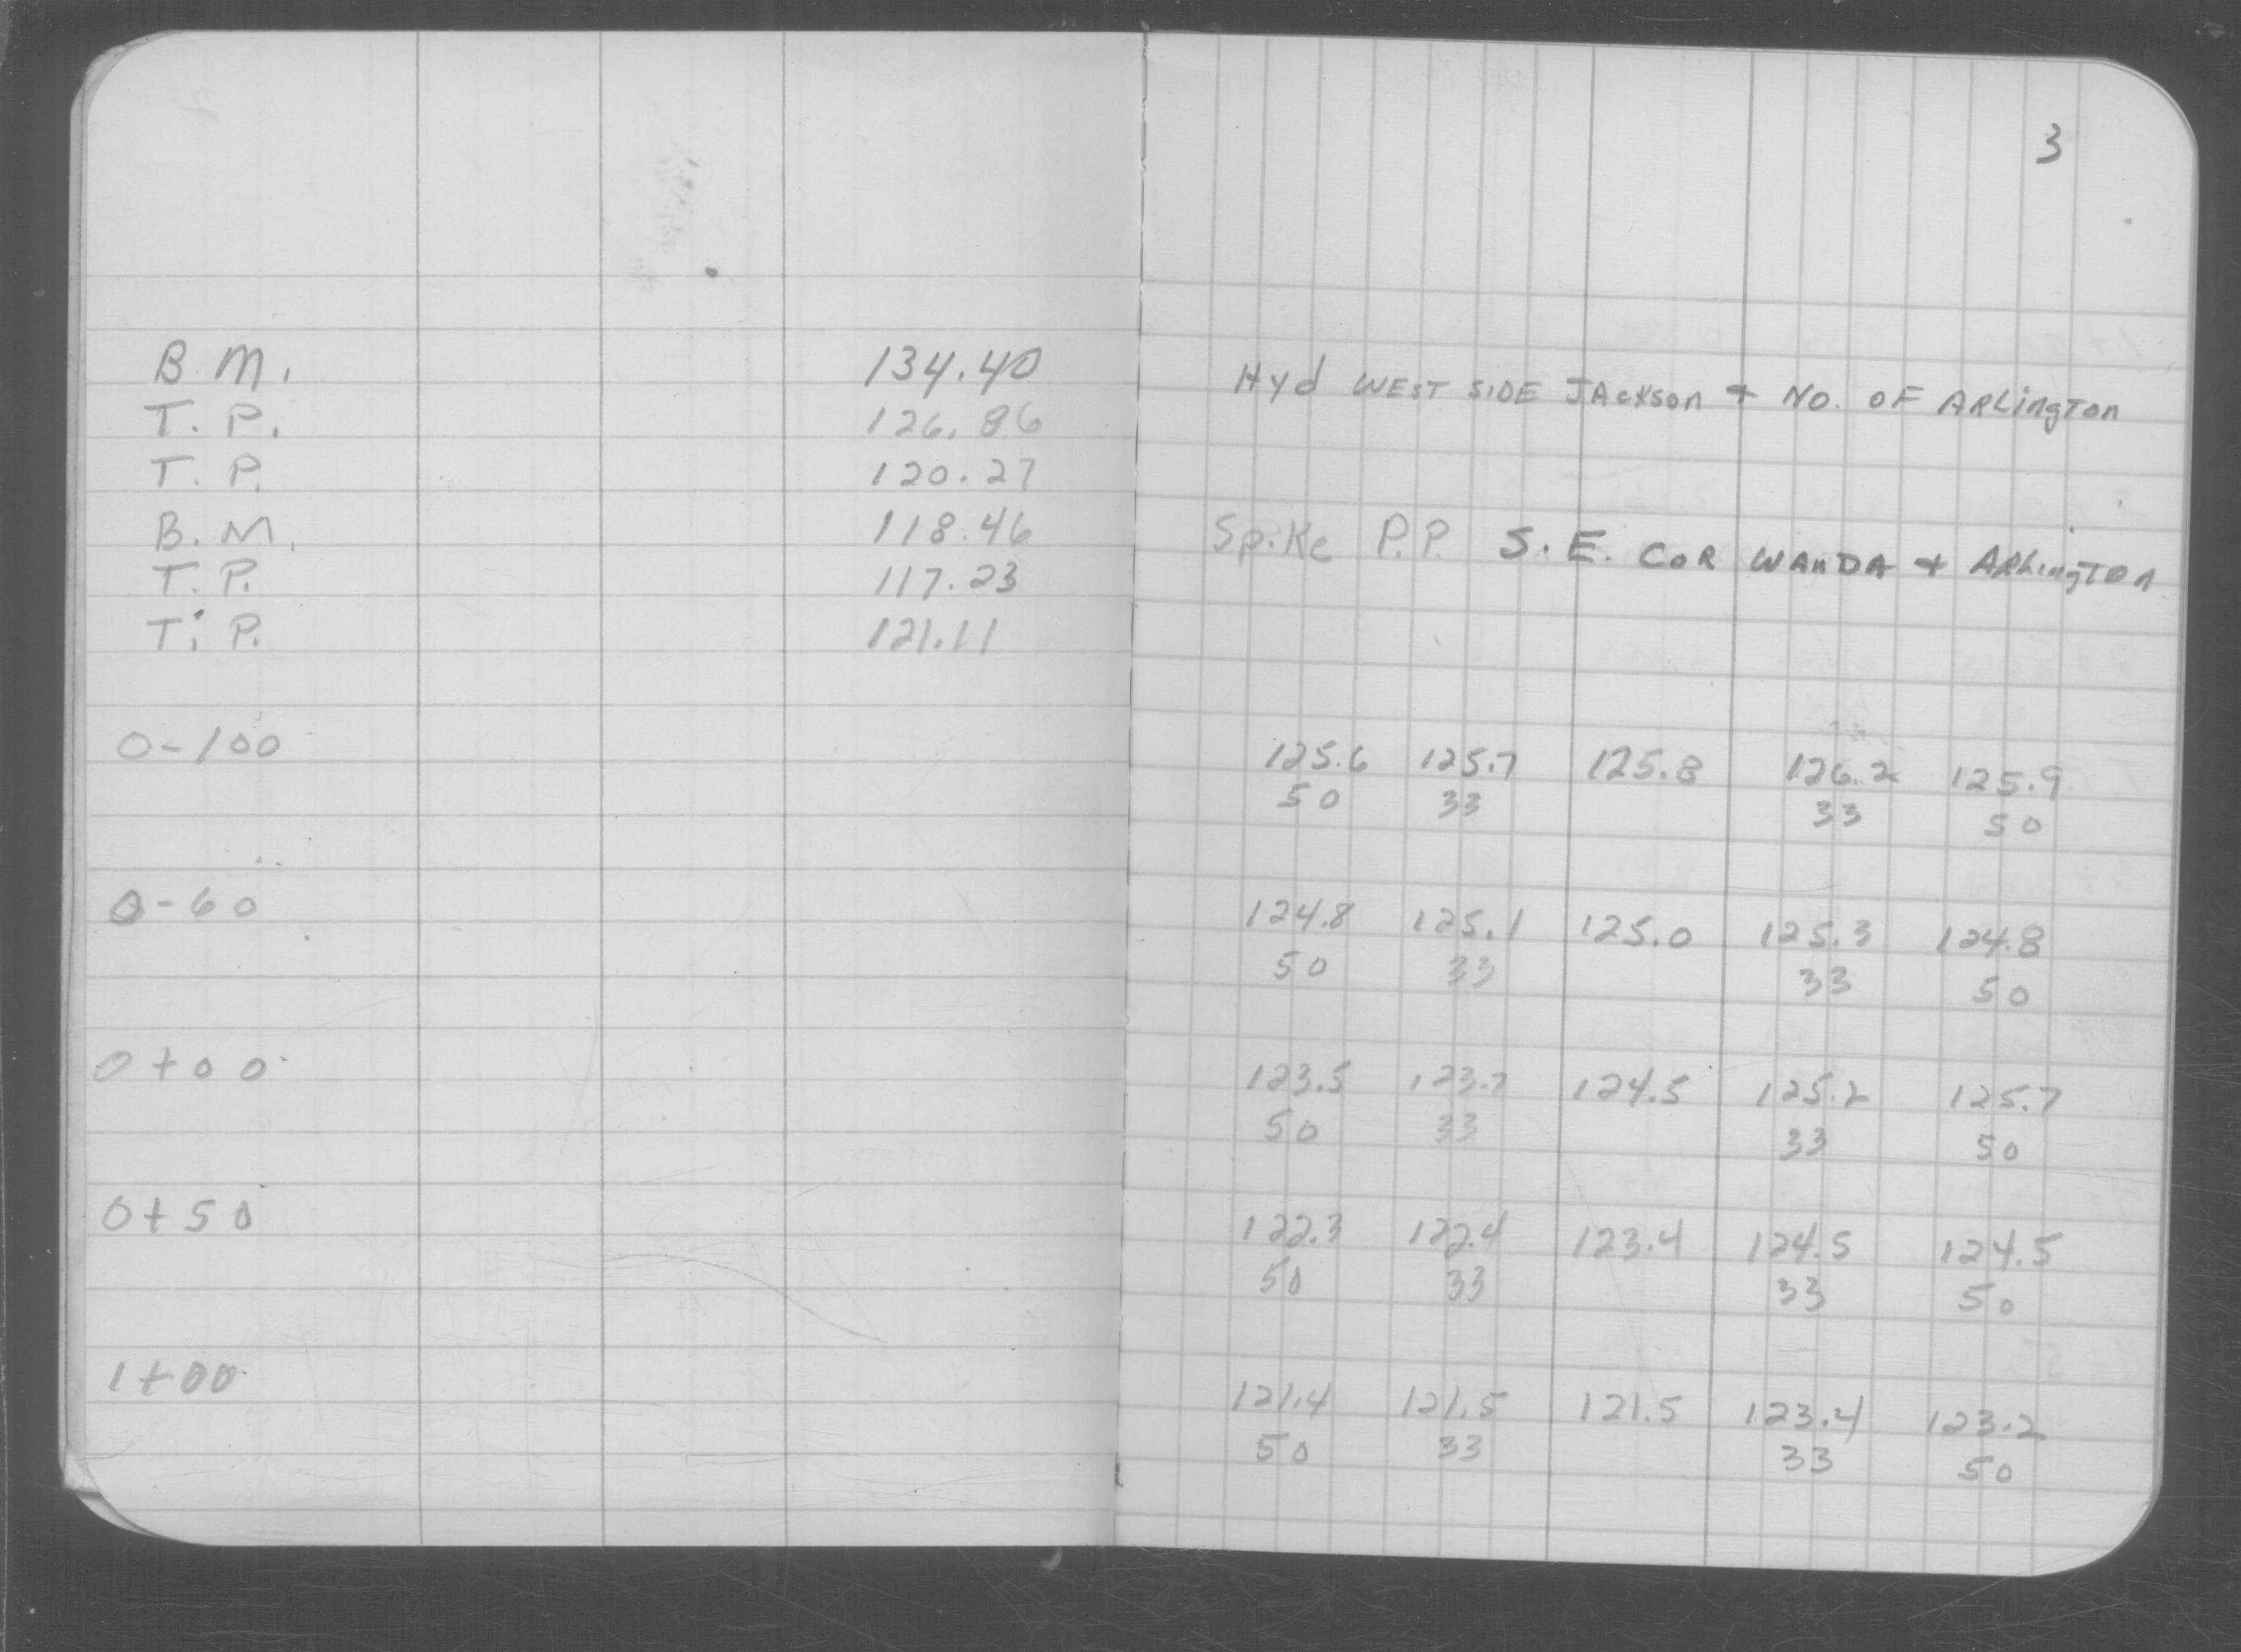 3
B.M. 134.40 Hyd WEST SIDE JACKSON + NO. OF ARLington
T.P. 126.86
T.P. 120.27
B.M. 118.46 Spike P.P. S.E. COR WANDA + ARLington
T.P. 117.23
T.P. 121.11
0-100 125.6 125.7 125.8 126.2 125.9
50 33 33 50
0-60 124.8 125.1 125.0 125.3 124.8
50 33 33 50
0+00 123.5 123.7 124.5 125.2 125.7
50 33 33 50
0+50 122.3 122.4 123.4 124.5 124.5
50 33 33 50
1+00 121.4 121.5 121.5 123.4 123.2
50 33 33 50